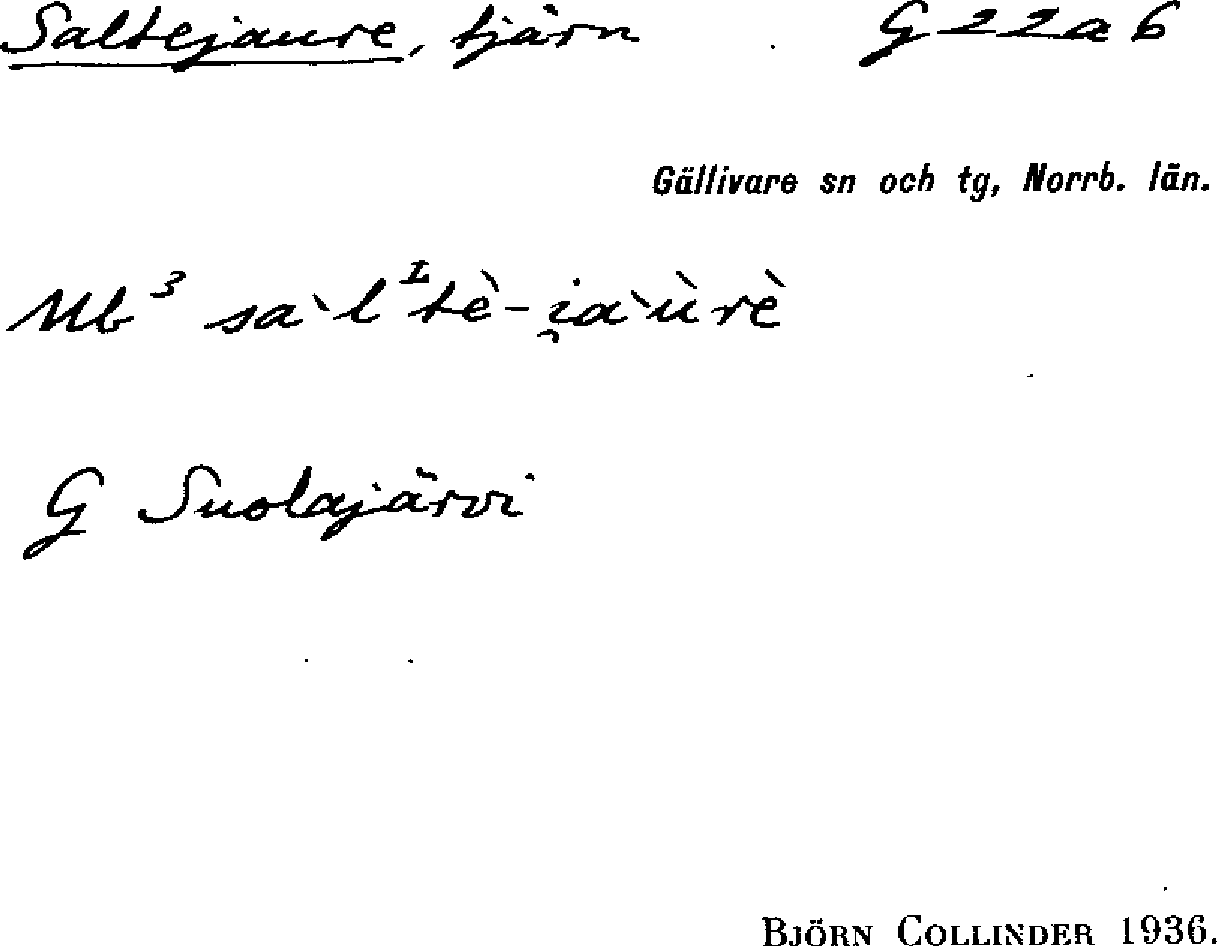 Saltejaure, tjärn G 22 a 6
Gällivare sn och tg, Norrb. län.
Mb³ sa`lᴵtè-i̯a`ùrè
G Suolajärvi
BJÖRN COLLINDER 1936.